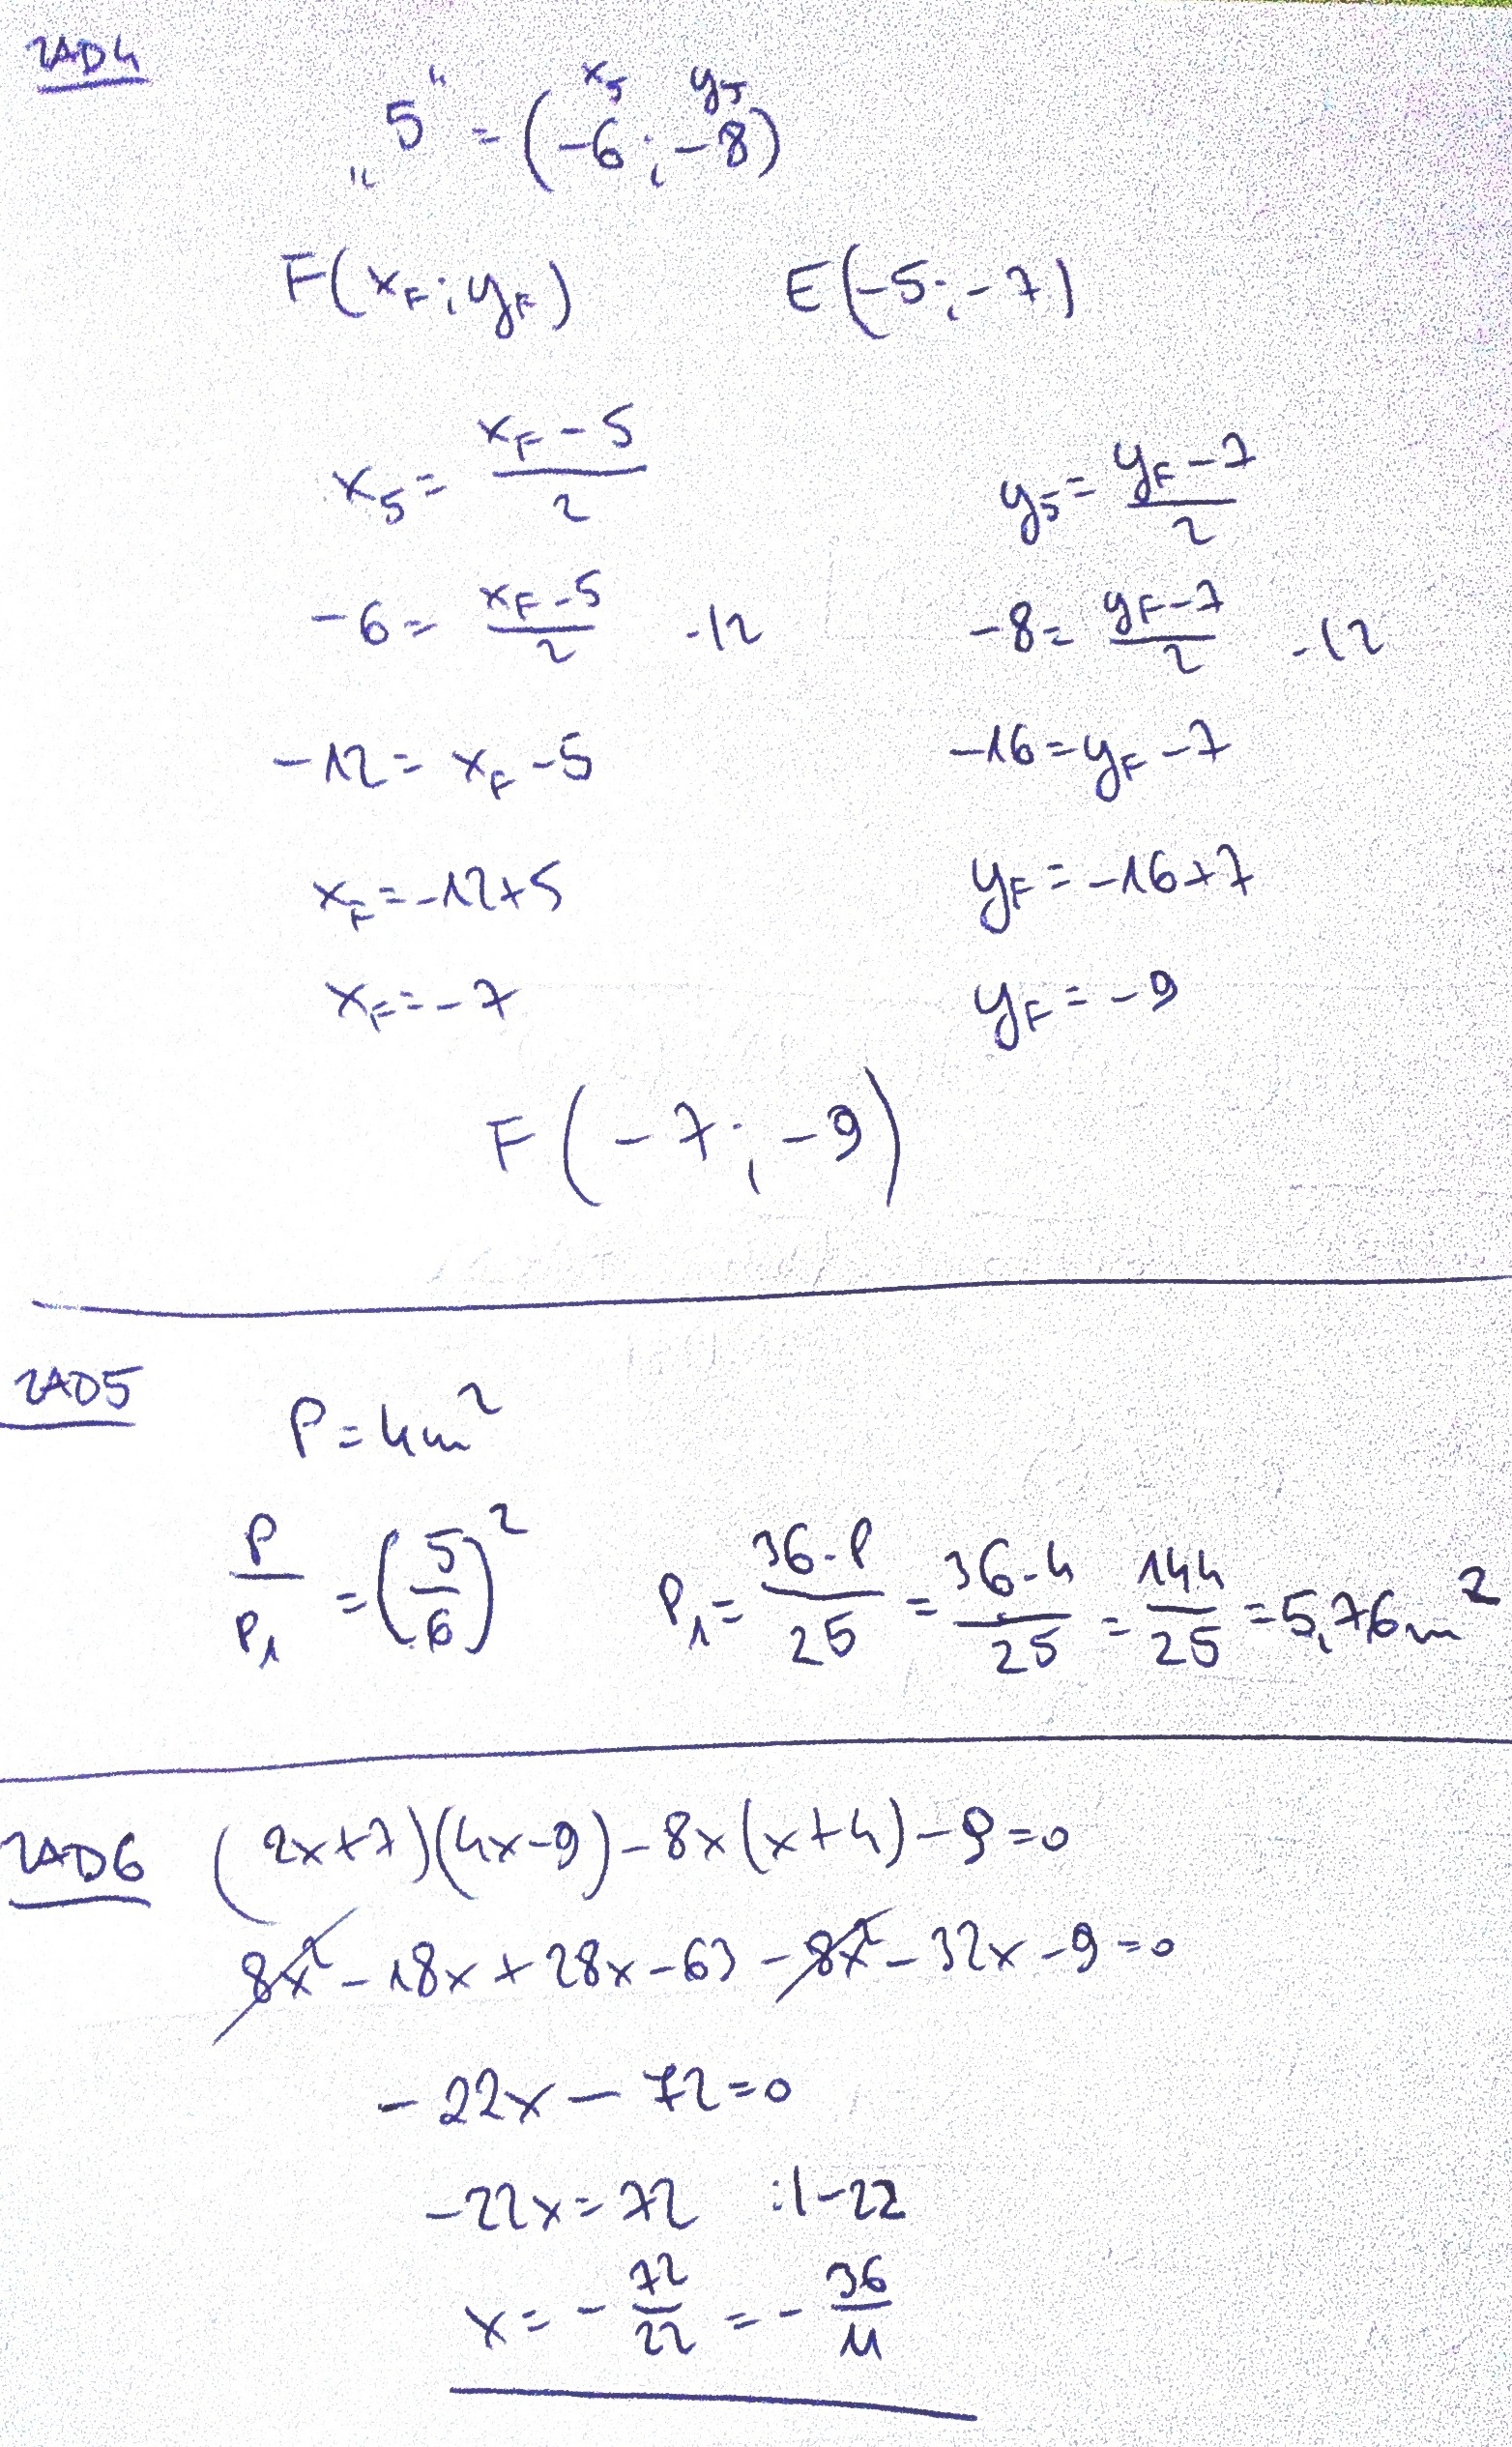 ZAD4
x5 y5
„5" = (-6 ; -8)
F(xF ; yF) E(-5 ; -7)
x5 = (xF - 5)/2 y5 = (yF - 7)/2
-6 = (xF - 5)/2 ·|2 -8 = (yF - 7)/2 ·|2
-12 = xF - 5 -16 = yF - 7
xF = -12+5 yF = -16+7
xF = -7 yF = -9
F(-7 ; -9)
ZAD5
P = 4m²
P/P1 = (5/6)² P1 = 36·P/25 = 36·4/25 = 144/25 = 5,76m²
ZAD6 (2x+7)(4x-9) - 8x(x+4) - 9 = 0
8x² - 18x + 28x - 63 - 8x² - 32x - 9 = 0
-22x - 72 = 0
-22x = 72 :|-22
x = - 72/22 = - 36/11